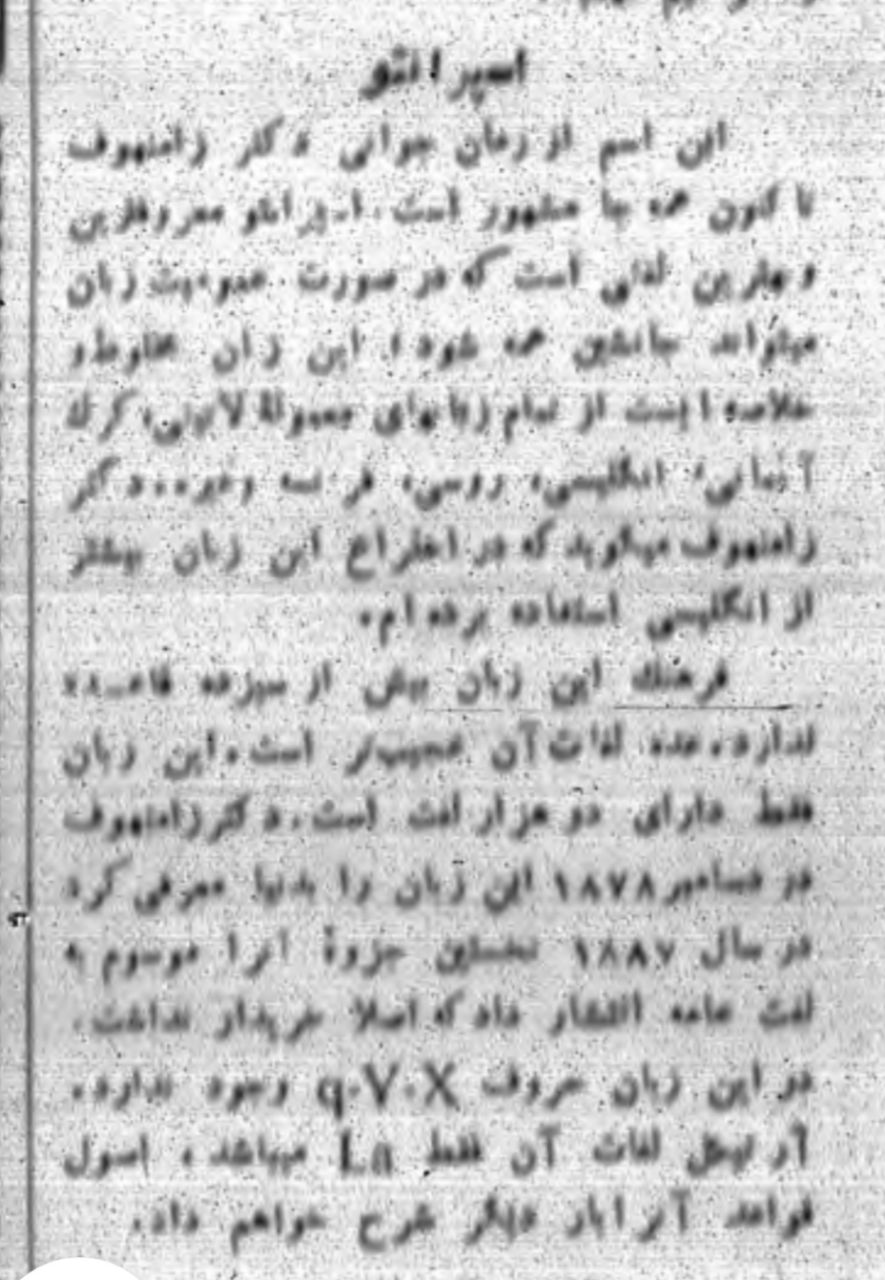 اسپرانتو
این اسم از زمان جوانی دکتر زامنهوف
تا کنون همه جا مشهور است. اسپرانتو معروفترین
و بهترین لغاتی است که در صورت عمومیت زبان
میتواند جانشین همه شود، این زبان مخلوط و
خلاصه ایست از تمام زبانهای معمولهٔ لاتینی،
آلمانی، انگلیسی، روسی، فرانسه وغیره. دکتر
زامنهوف میگوید که در اختراع این زبان بیشتر
از انگلیسی استفاده برده ام.
فرهنگ این زبان بیش از سیزده قاعده
ندارد، عده لغات آن عجیب‌تر است. این زبان
فقط دارای دو هزار لغت است. دکتر زامنهوف
در دسامبر ۱۸۷۸ این زبان را بدنیا معرفی کرد
در سال ۱۸۸۷ نخستین جزوهٔ آنرا موسوم به
لغت عامه انتشار داد که اصلا خریدار نداشت.
در این زبان حروف q.V.X وجود ندارد.
آرتیکل لغات آن فقط La میباشد، اصول
قواعد آنرا بار دیگر شرح خواهم داد.